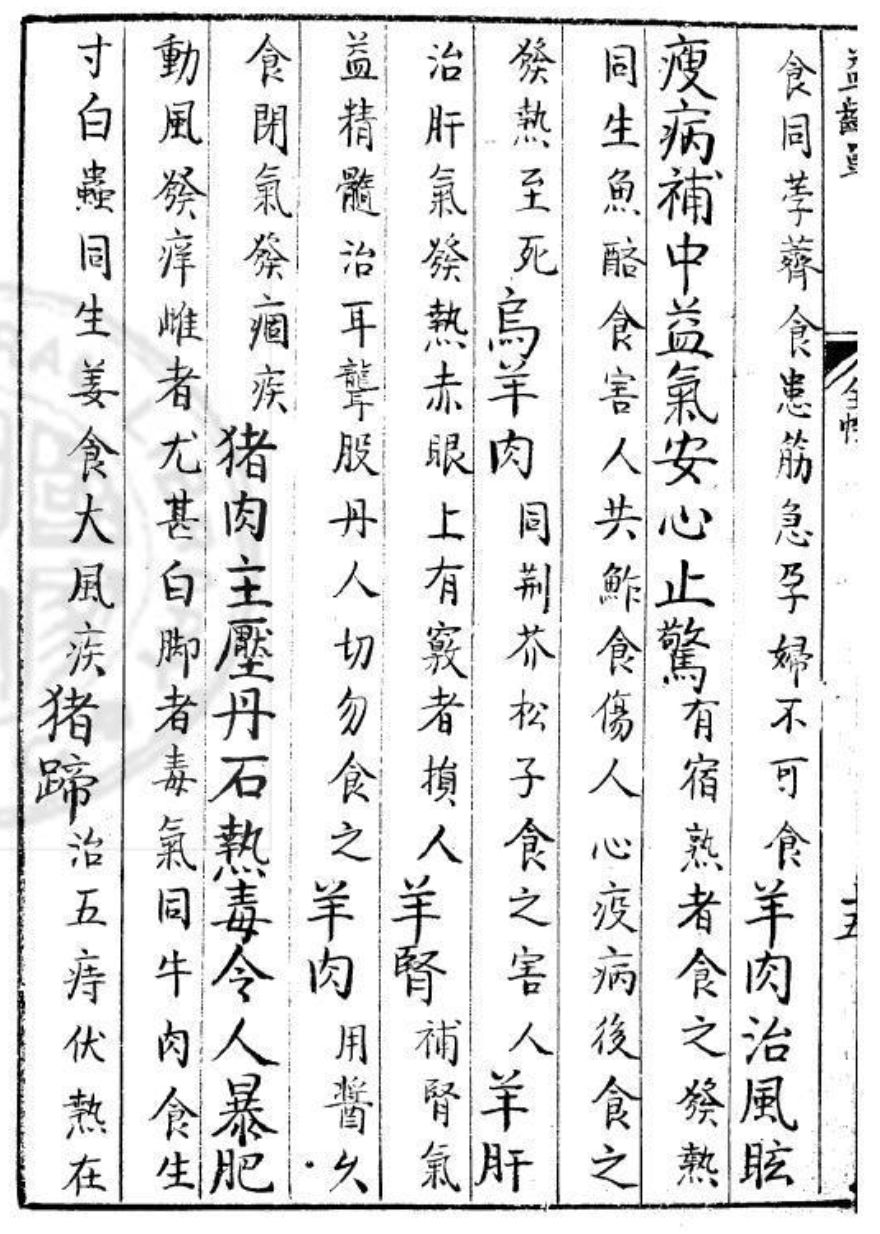 食同荸薺食患筋急孕婦不可食羊肉治風眩
瘦病補中益氣安心止驚有宿熟者食之發熱
同生魚酪食害人共鮓食傷人心疫病後食之
發熱至死烏羊肉同荆芥松子食之害人羊肝
治肝氣發熱赤眼上有竅者損人羊腎補腎氣
益精髓治耳聾股丹人切勿食之羊肉用醬久
食閉氣發痼疾猪肉主壓丹石熱毒令人暴肥
動風發痒雌者尤甚白脚者毒氣同牛肉食生
寸白蟲同生姜食大風疾猪蹄治五痔伏熱在